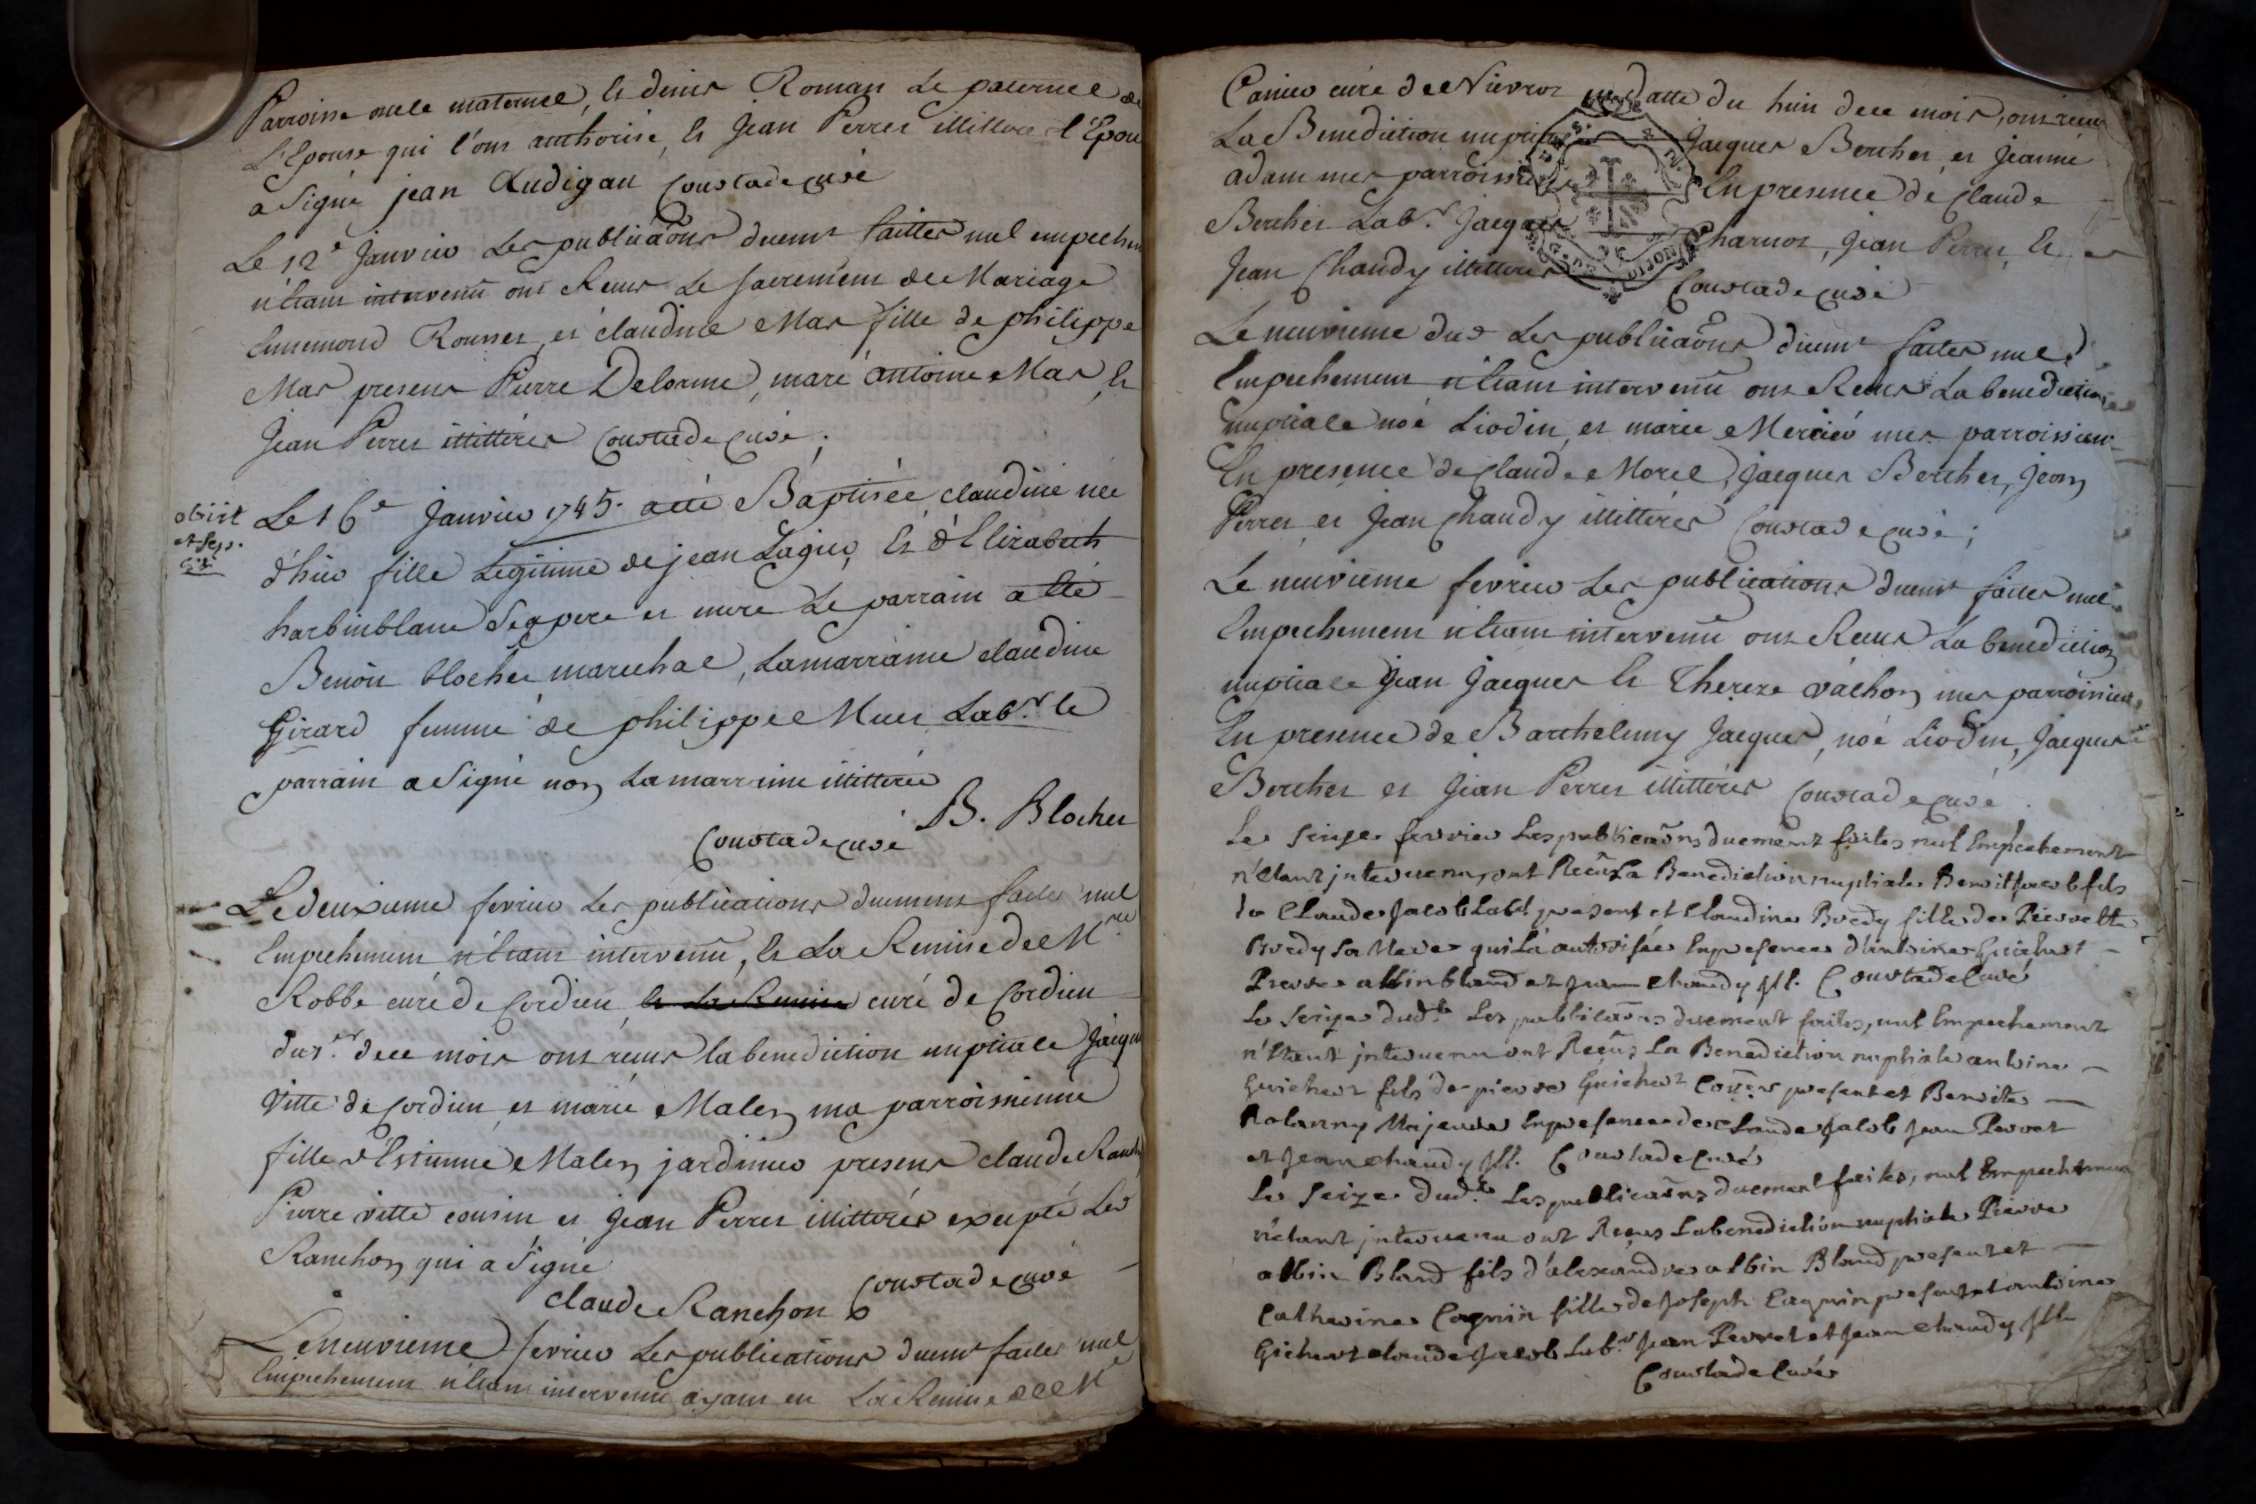 Parroisse oncle maternel, et denis Roman Le paternel de
L'Epouse qui l'ont authorisé, et Jean Perret illitteré l'Epoux
a signé jean Audigau Coustade curé
Le 12e Janvier Les publicaons duemt faittes nul empechem
n'étant intervenu ont Reçus Le sacrement de Mariage
Ennemond Rousset et claudine Mas fille de philippe
Mas presens Pierre Delorme, mare antoine Mas, et
Jean Perret illitterés Coustade curé;
obiit
et sep.
Le 16e Janvier 1745. a été Baptisée claudine née
d'hier fille Legitime de jean Lagier, Et d'Elizabeth
harbinblanc Ses pere et mere Le parrain a été
Benoit blochet marechal, La marraine claudine
Girard femme de philippe Labr. le
parrain a Signé non La marraine illitterée
B. Blochet
Coustade curé
Le deuxieme fevrier Les publications duement faites nul
Empechement n'étant intervenu, et La Remise de Mre
Robbe curé de Cordieu et La Remise curé de Cordieu
du 1er de ce mois ont reçus la benediction nuptiale Jacque
Vitte de Cordieu et marie Malen ma parroissienne
fille d'Estienne Malen jardinier presens claude Ranch
Pierre vitte cousin et Jean Perret illitterés excepté Led
Ranchon qui a signé
claude Ranchon Coustade curé
Le neuvieme fevrier Les publications duemt faites nul
Empechement n'étant intervenu ayant eu La Remise de Mr
curé de en datte du huit de ce mois, ont reçu
La Benediction nuptiale Jacques Berthet et Jeanne
adam mes parroissiens En presence de Claude
Berthet Labr. Jacques Charnot, Jean Perret, Et
Jean Chaudy illitterés Coustade curé
Le neuvieme dud Les publicaons duemt faites nul
Empechement n'étant intervenu ont Reçus La benediction
nuptiale noé Liodin et marie Mercier mes parroissiens
En presence de Claude Morel, Jacques Berthet, Jean
Perret et Jean Chaudy illitterés Coustade curé;
Le neuvieme fevrier Les publications duemt faites nul
Empechement n'étant intervenu ont Recus La benediction
nuptiale Jean Jacques Et Thereze vachon mes parroissiens
En presence de Barthelemy Jacques, noé Liodin, Jacques
Berthet et Jean Perret illitterés Coustade curé
Le seize fevrier Les publicaons duement faites nul Empechement
n'étant intervenu, ont Recus La Benediction nuptiale Benoit Jacob fils
de Claude Jacob Labr present et Claudine Bredy fille de Pierrette
Bredy sa Mere qui L'a autorisée En presence d'antoine Guichert
Pierre albinbland et Jean chaudy Ill. Coustade Curé
Le seize dudt Les publicaons duement faites, nul Empechement
n'étant intervenu ont Reçus La Benediction nuptiale antoine
Guichert fils de pierre Guichert present et Benoite
Majeure En presence de Claude Jacob Jean Perret
et Jean chaudy Ill. Coustade Curé
Le seize dudt Les publicaons duement faites, nul Empechement
n'étant intervenu ont Reçus La benediction nuptiale Pierre
albin Bland fils d'alexandre albin Bland present et
Catherine Cagnin fille de Joseph Cagnin present et antoine
Gichert claude Jacob Labr Jean Perret et Jean chaudy Ill.
Coustade Curé